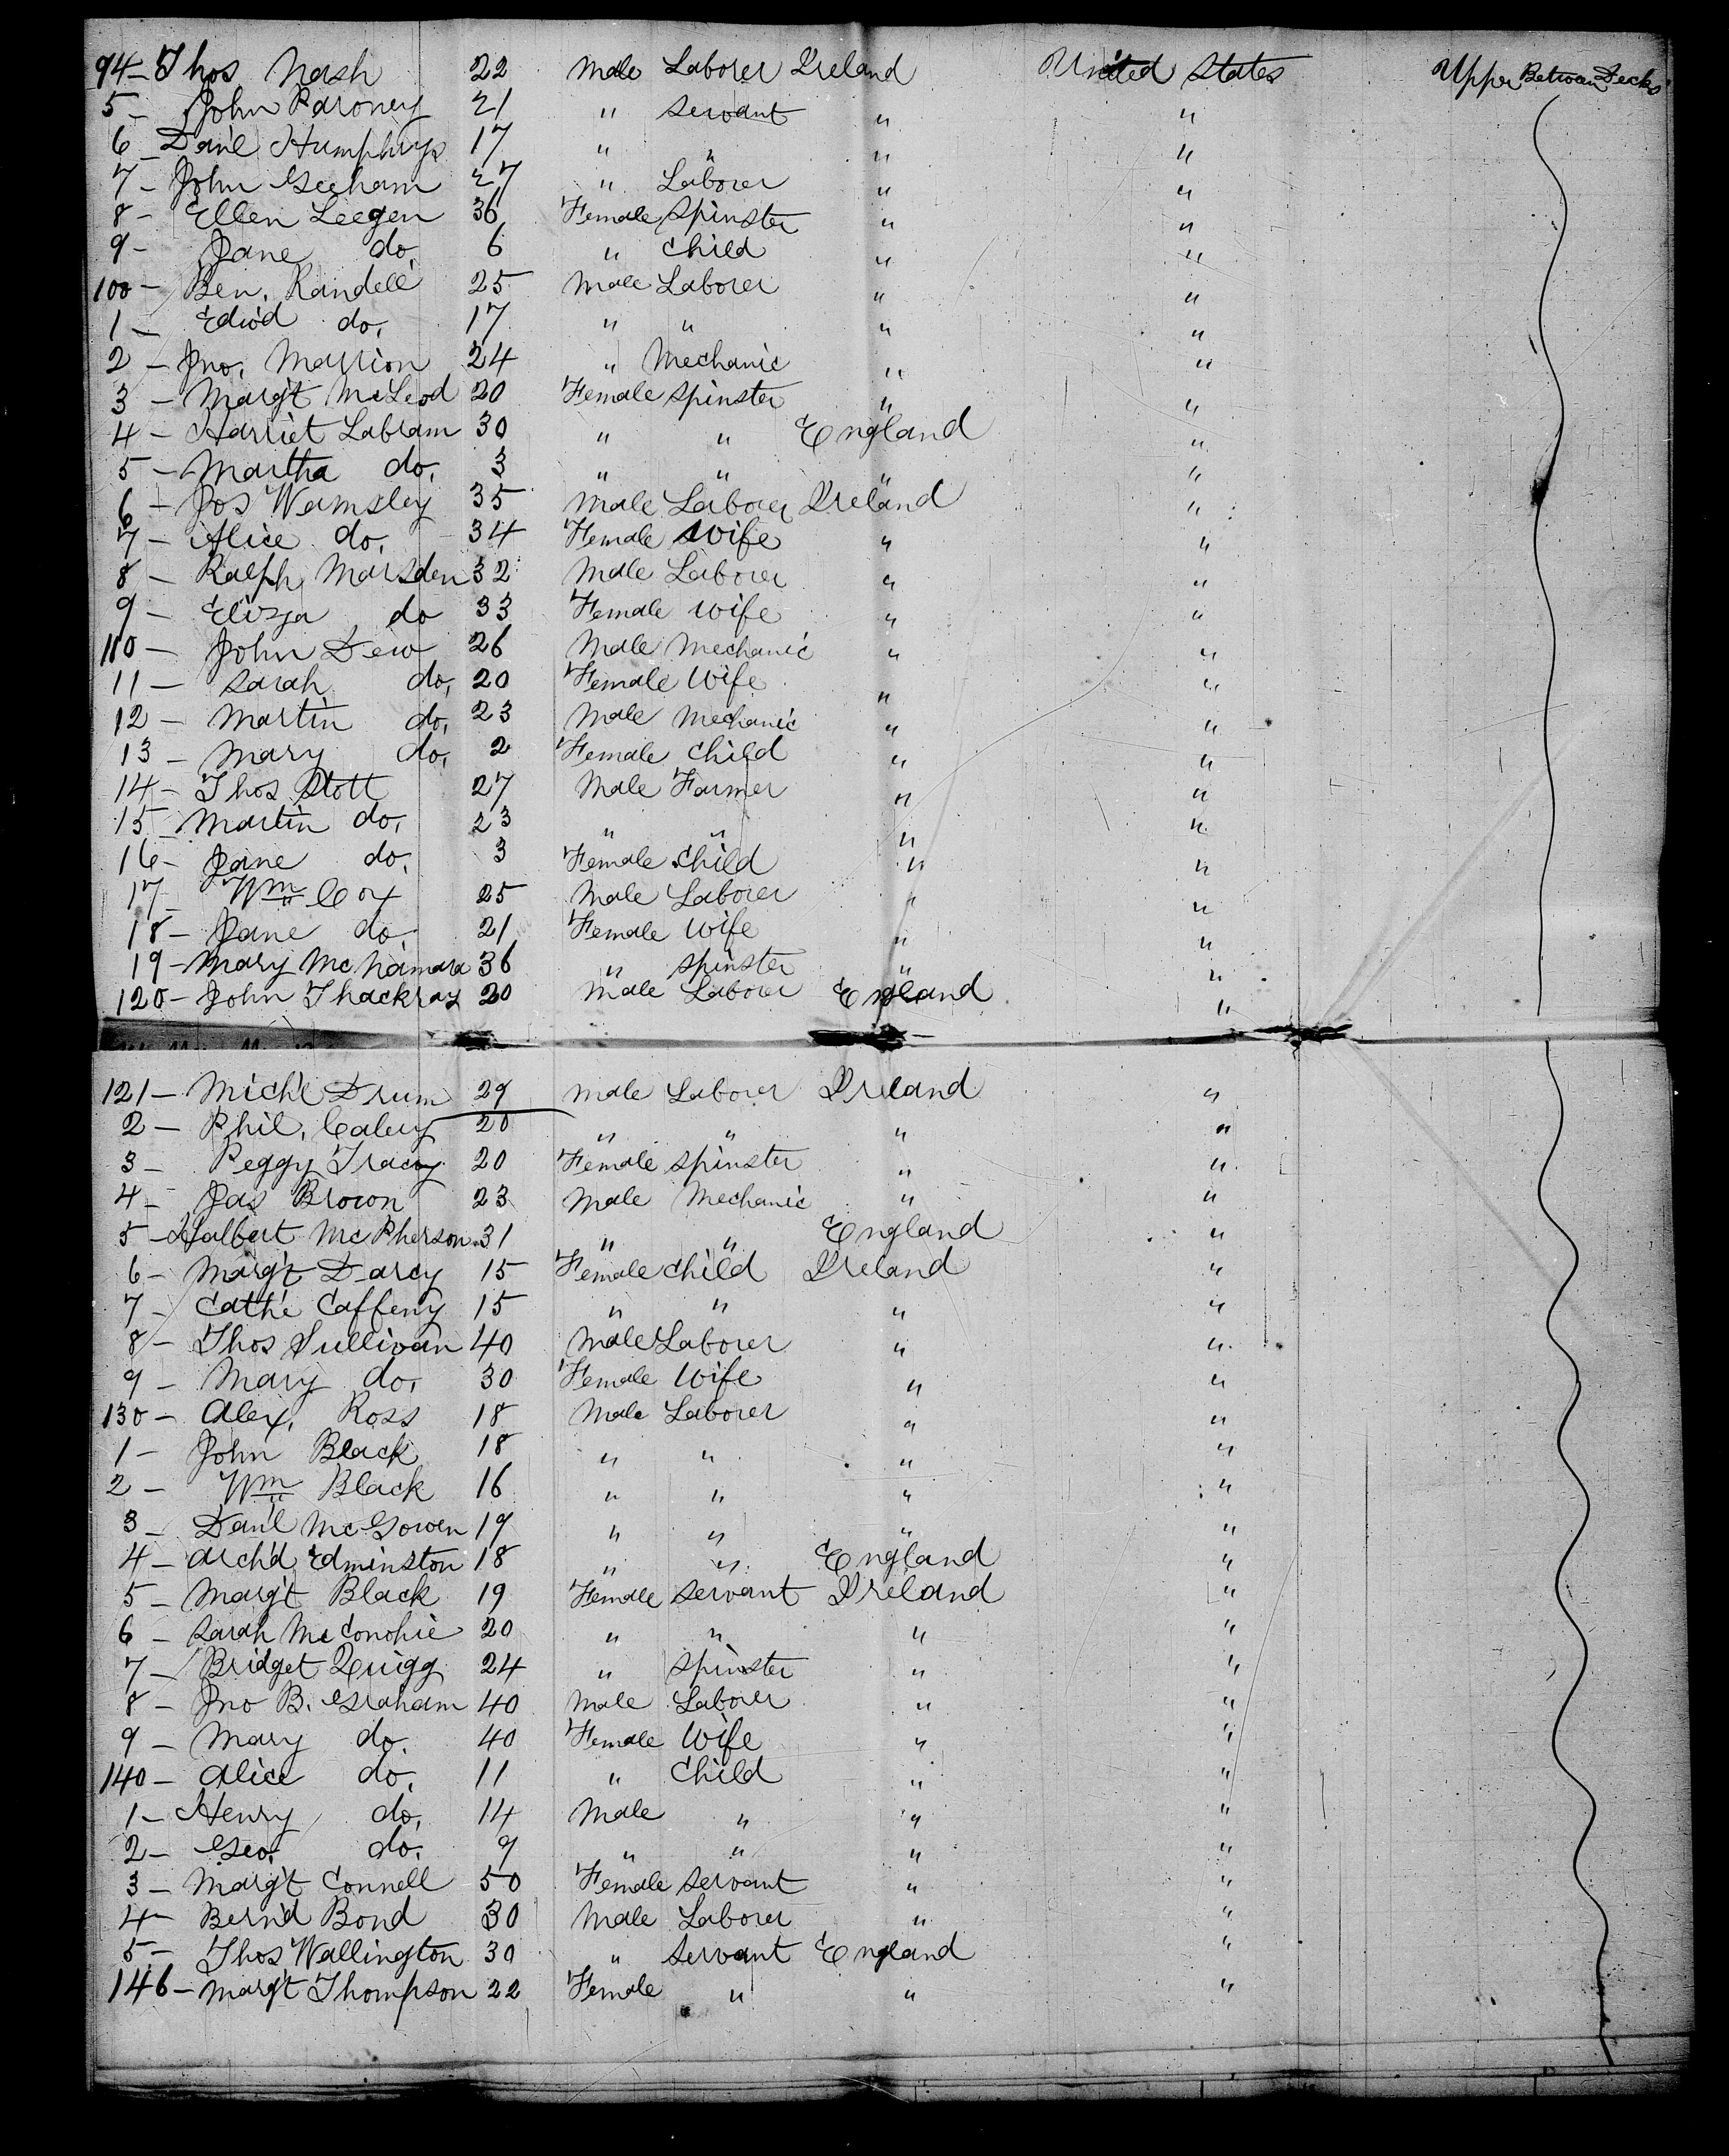 94 - Thos Nash 22 Male Laborer Ireland United States Upper Between Decks
5 - John Paroney 21 " Servant " "
6 - Dan'l Humphrys 17 " " " "
7 - John Geeham 27 " Laborer " "
8 - Ellen Leegen 36 Female Spinster " "
9 - Jane do. 6 " Child " "
100 - Ben. Randell 25 Male Laborer " "
1 - Edw'd do. 17 " " " "
2 - Jno. Marrion 24 " Mechanic " "
3 - Marg't McLeod 20 Female Spinster " "
4 - Harriet Labram 30 " " England "
5 - Martha do. 3 " " " "
6 - Jos Wamsley 35 Male Laborer Ireland "
7 - Alice do. 34 Female Wife " "
8 - Ralph Marsden 32 Male Laborer " "
9 - Eliza do 33 Female Wife " "
110 - John Dew 26 Male Mechanic " "
11 - Sarah do. 20 Female Wife " "
12 - Martin do. 23 Male Mechanic " "
13 - Mary do. 2 Female Child " "
14 - Thos Stott 27 Male Farmer " "
15 - Martin do. 23 " " " "
16 - Jane do. 3 Female Child " "
17 - Wm Cox 25 Male Laborer " "
18 - Jane do. 21 Female Wife " "
19 - Mary McNamara 36 " Spinster " "
120 - John Thackray 20 Male Laborer England "
121 - Mich'l Drum 29 Male Laborer Ireland "
2 - Phil. Caley 20 " " " "
3 - Peggy Tracy 20 Female Spinster " "
4 - Jas Brown 23 Male Mechanic " "
5 - Halbert McPherson 31 " " England "
6 - Marg't Darcy 15 Female Child Ireland "
7 - Cath'e Caffeny 15 " " " "
8 - Thos Sullivan 40 Male Laborer " "
9 - Mary do. 30 Female Wife " "
130 - Alex. Ross 18 Male Laborer " "
1 - John Black 18 " " " "
2 - Wm Black 16 " " " "
3 - Dan'l McGowen 19 " " " "
4 - Arch'd Edminston 18 " " England "
5 - Marg't Black 19 Female Servant Ireland "
6 - Sarah McConohie 20 " " " "
7 - Bridget Quigg 24 " Spinster " "
8 - Jno B. Graham 40 Male Laborer " "
9 - Mary do. 40 Female Wife " "
140 - Alice do. 11 " Child " "
1 - Henry do. 14 Male " " "
2 - Geo. do. 9 " " " "
3 - Marg't Connell 50 Female Servant " "
4 - Bern'd Bond 30 Male Laborer " "
5 - Thos Wallington 30 " Servant England "
146 - Marg't Thompson 22 Female " " "